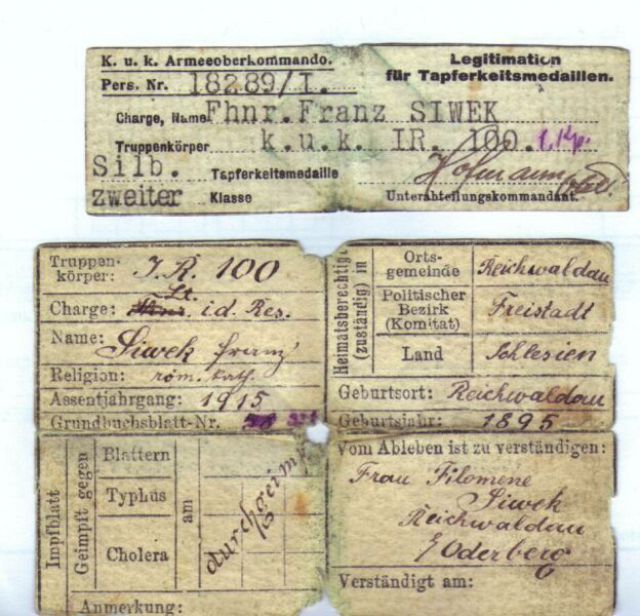 K. u. k. Armeeoberkommando.
Legitimation
für Tapferkeitsmedaillen.
Pers. Nr. 18289/I.
Charge, Name Fhnr. Franz SIWEK
Truppenkörper k.u.k. IR. 100.
Silb. Tapferkeitsmedaille
zweiter Klasse
Hofmann
Unterabteilungskommandant.
Truppen-
körper: I.R. 100
Charge: Lt. i.d. Res.
Name: Siwek Franz
Religion: röm. kath.
Assentjahrgang: 1915
Grundbuchsblatt-Nr.
Heimatsberechtigt
(zuständig) in
Orts-
gemeinde Reichwaldau
Politischer
Bezirk
(Komitat) Freistadt
Land Schlesien
Geburtsort: Reichwaldau
Geburtsjahr: 1895
Impfblatt
Geimpft gegen
Blattern
Typhus
Cholera
am
durchgeimpft
Anmerkung:
Vom Ableben ist zu verständigen:
Frau Filomene
Siwek
Reichwaldau
Oderberg
Verständigt am: